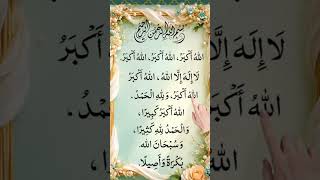 بسم الله الرحمن الرحيم
اللهُ أَكْبَرُ، اللهُ أَكْبَرُ، اللهُ أَكْبَرُ.
لَا إِلَهَ إِلَّا اللهُ، اللهُ أَكْبَرُ
اللهُ أَكْبَرُ، وَلِلهِ الْحَمْدُ.
اللهُ أَكْبَرُ كَبِيرًا،
وَالْحَمْدُ لِلهِ كَثِيرًا،
وَسُبْحَانَ اللهِ
بُكْرَةً وَأَصِيلًا